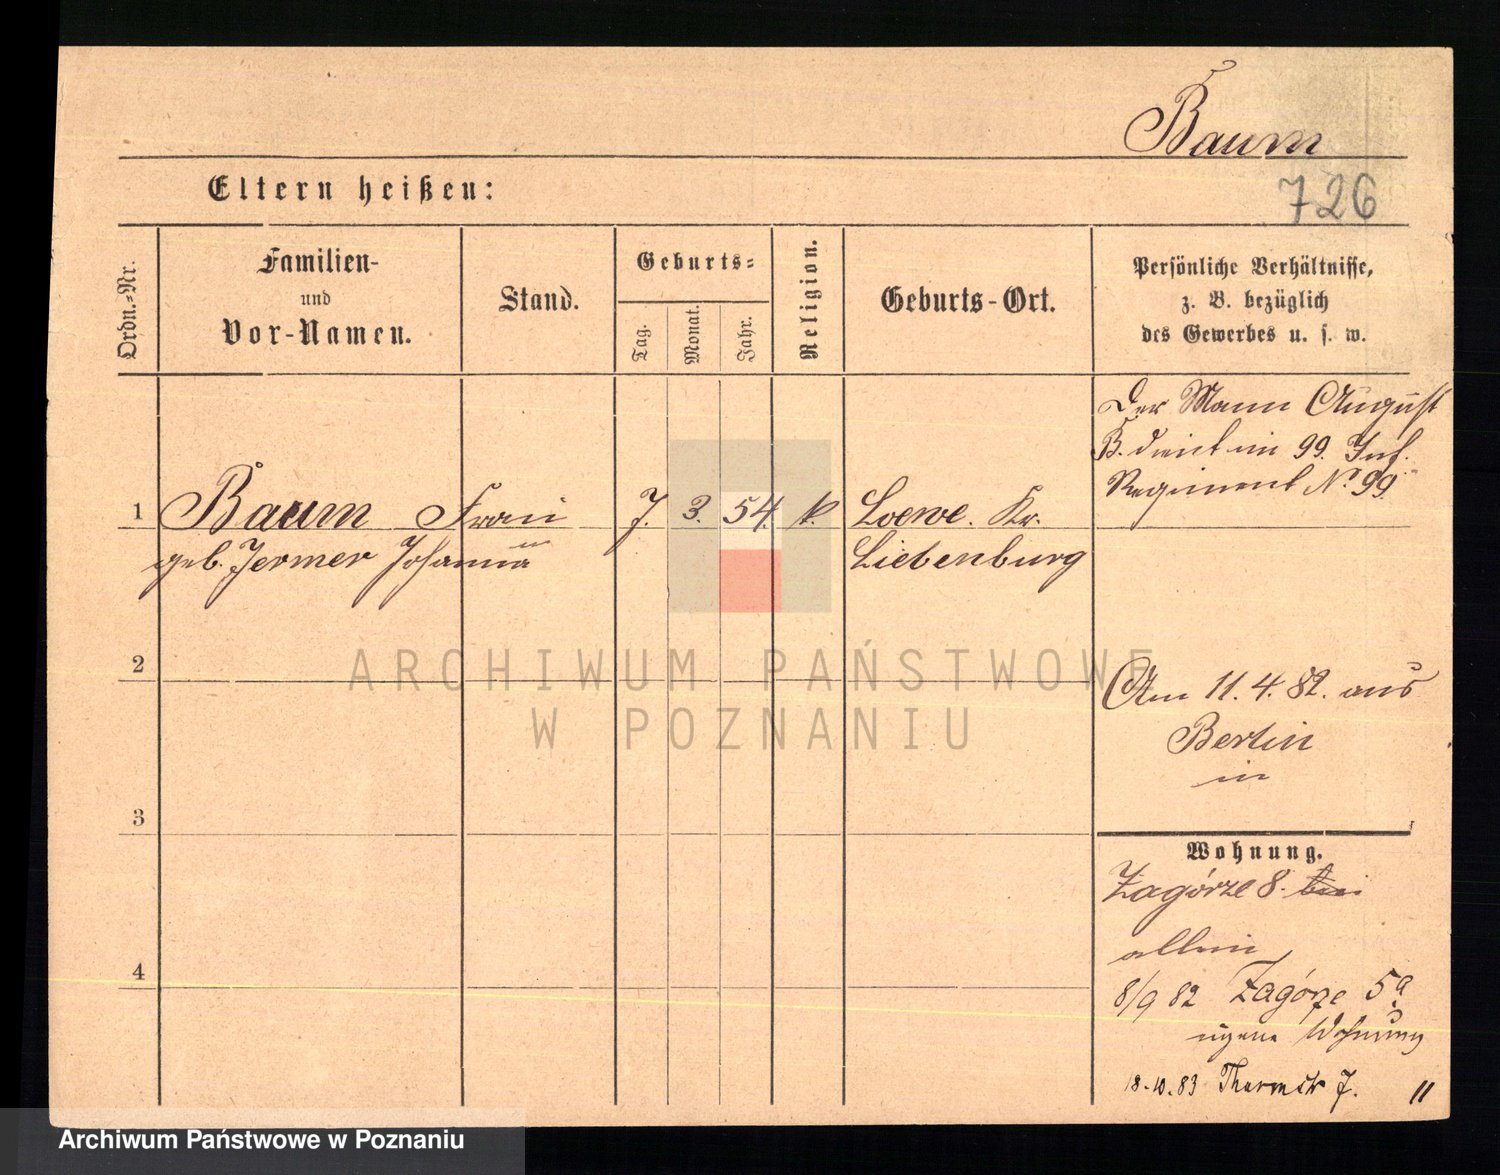 Baum
Eltern heißen:
726
Ordn.-Nr.
Familien-
und
Vor-Namen.
Stand.
Geburts-
Tag.
Monat.
Jahr.
Religion.
Geburts-Ort.
Persönliche Verhältnisse,
z. B. bezüglich
des Gewerbes u. s. w.
Der Mann August
B. dient im 99. Inf.
Regiment No. 99.
1 Baum Frau 7. 3. 54 k. Loewe. Kr.
geb. Jermer Johanna Liebenburg
2
ARCHIWUM PAŃSTWOWE
W POZNANIU
Am 11. 4. 82. aus
Berlin
in
3
Wohnung.
Zagórze 8. bei
allein
4
8/9 82 Zagórze 5a
eigene Wohnung
18.10.83 Thurmstr 7. 11
Archiwum Państwowe w Poznaniu